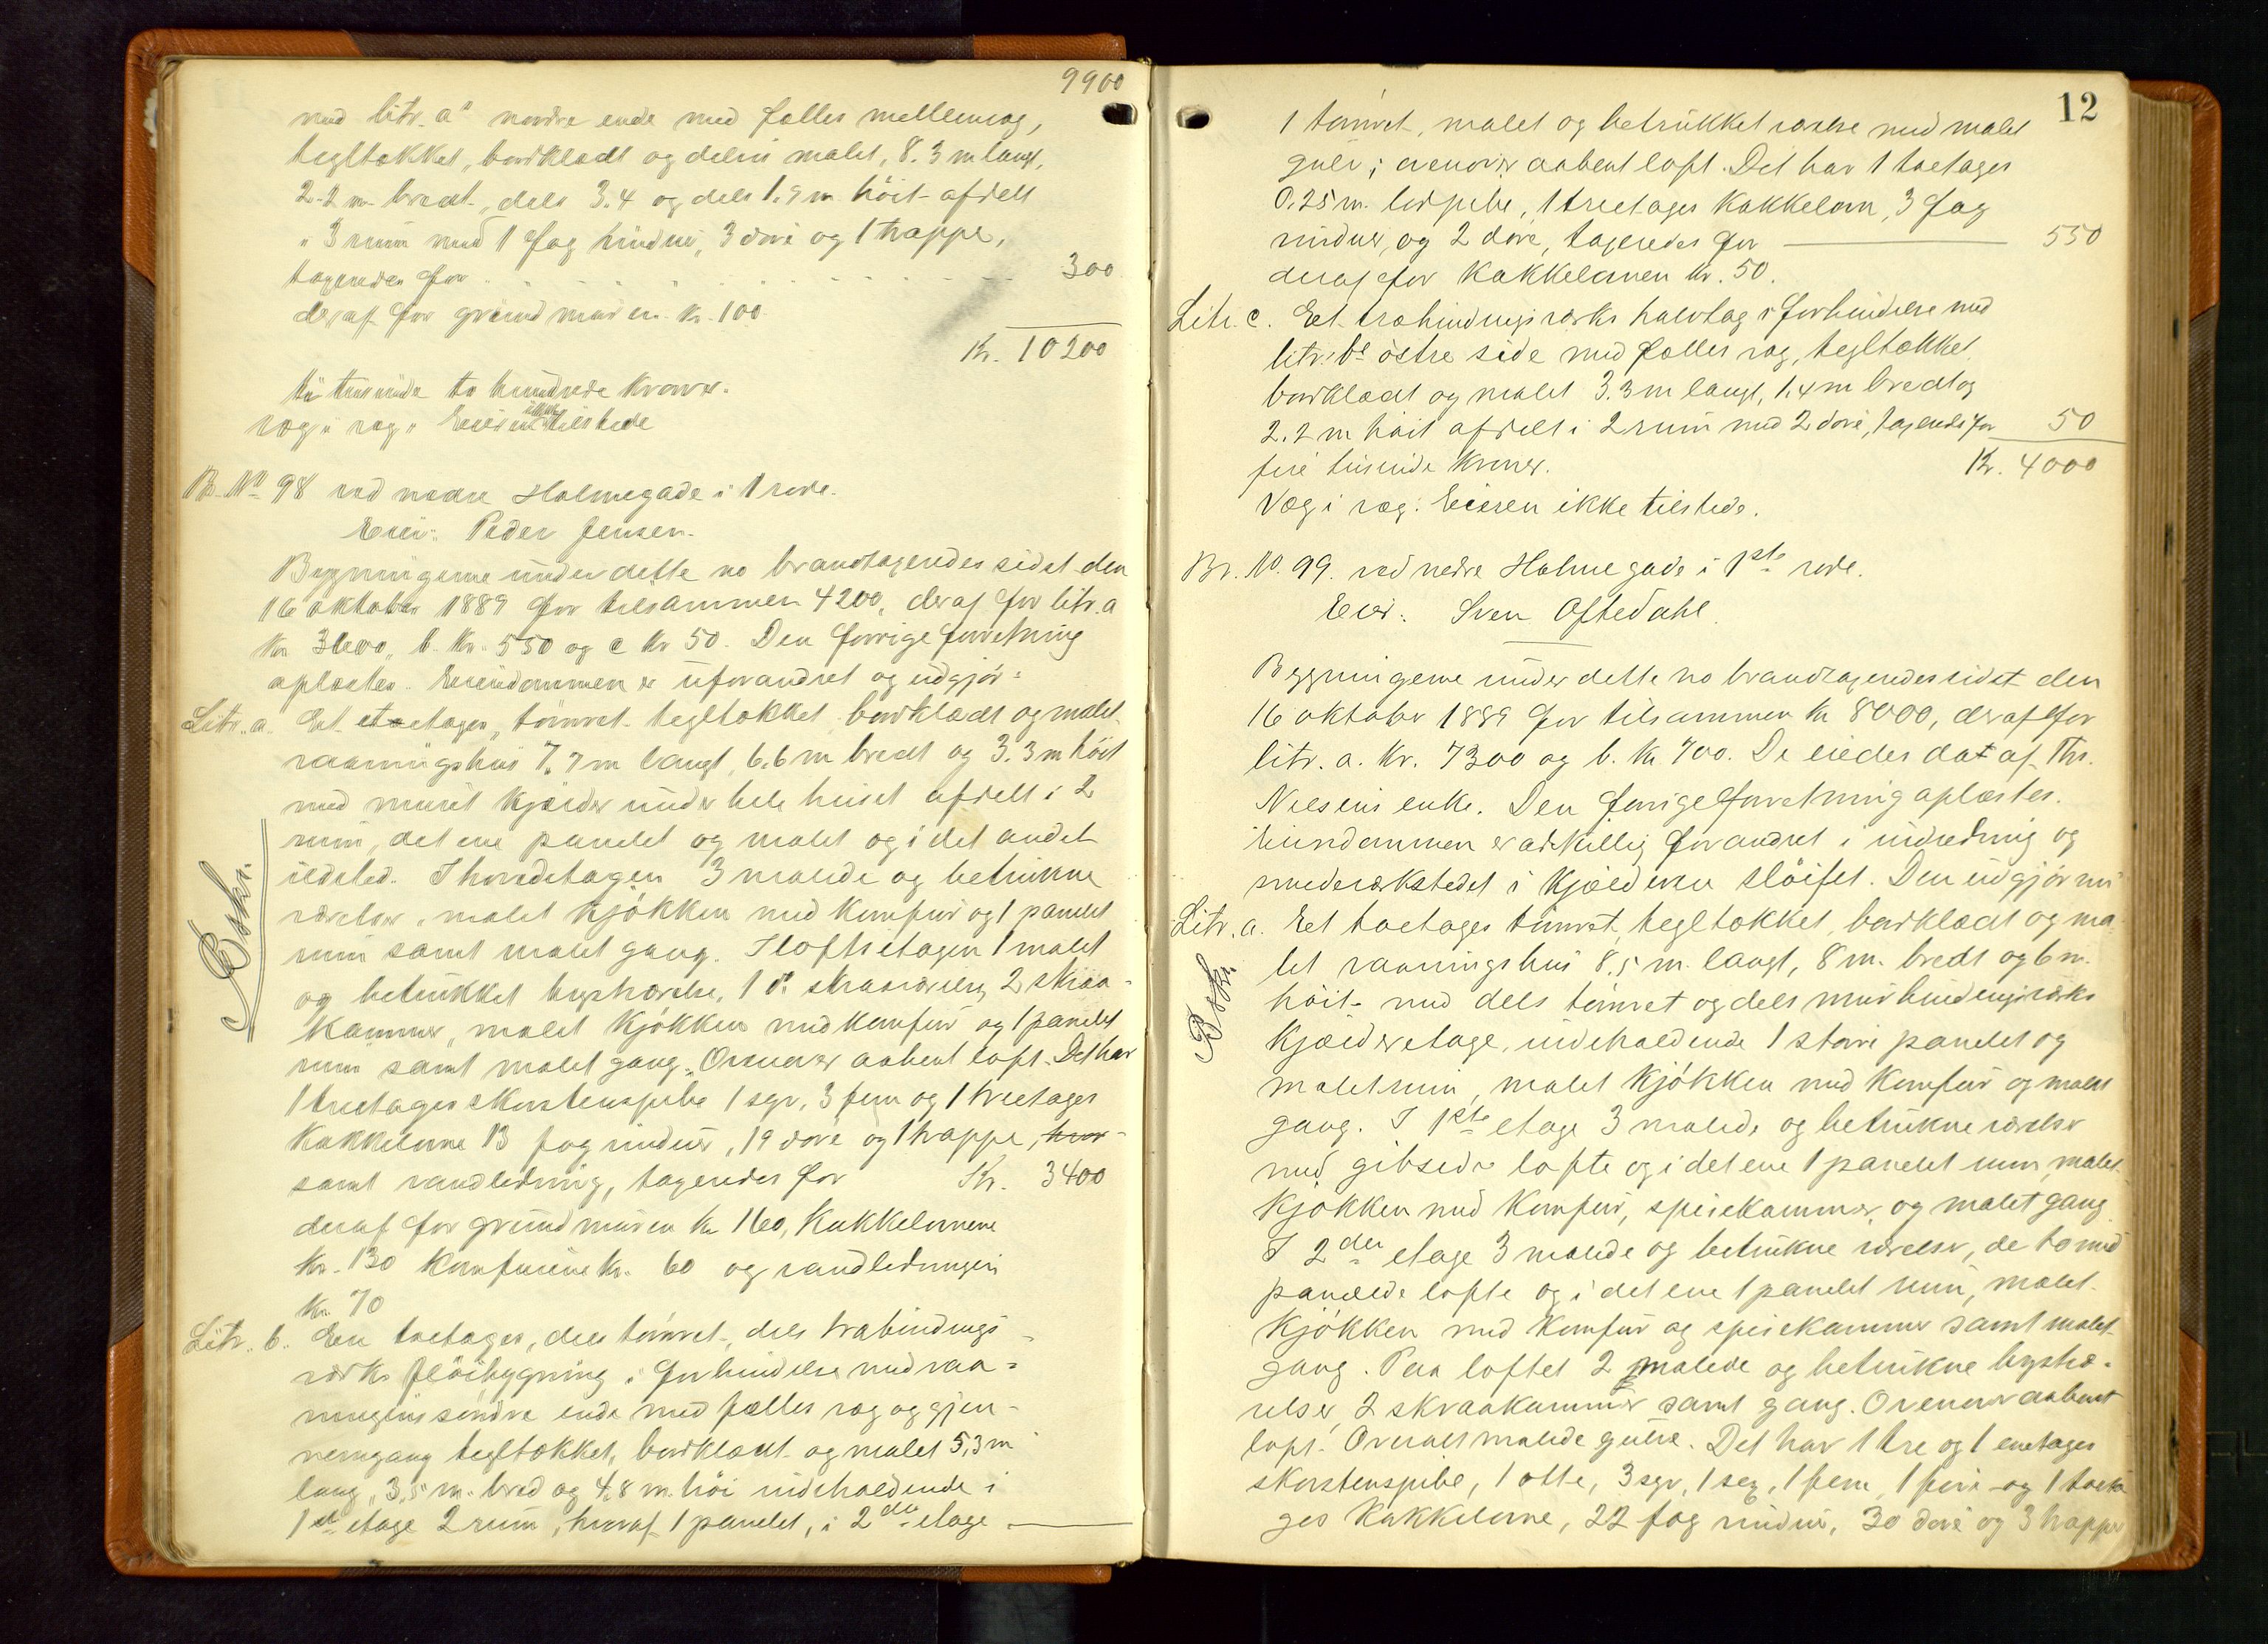 9900
med litr. a" nordre ende med fælles mellemvæg,
tegltækket, bordklædt og delvis malet, 8.3 m langt,
2.2 m bredt, dels 3.4 og dels 1.9 m høit afdelt
i 3 rum med 1 fag vinduer, 3 døre og 1 trappe,
taxeredes for 300
deraf for grundmuren kr. 100
Kr. 10200
ti tusinde to hundrede kroner.
Væg i væg. Eieren ikke tilstede
Br. No 98 ved nedre Holmegade i 1 rode.
Eier: Peder Jensen.
Bygningerne under dette no brandtaxeredes sidst den
16 oktober 1889 for tilsammen 4200, deraf for litr. a
kr. 3600, b. kr. 550 og c kr 50. Den forrige forretning
oplæstes. Eiendommen er uforandret og udgjør:
Litr. a. Et etages, tømret tegltækket, bordklædt og malet
vaaningshus 7.7 m langt, 6.6 m bredt og 3.3 m høit
med muret kjælder under hele huset afdelt i 2
rum, det ene panelet og malet og i det andet
ildsted. I hovedetagen 3 malede og betrukne
værelser, malet kjøkken med komfur og 1 panelet
rum samt malet gang. I loftsetagen 1 malet
og betrukket kvistværelse, 1 do skraaværelse, 2 skraa-
kammer, malet kjøkken med komfur og 1 panelet
rum samt malet gang. Ovenover aabent loft. Det har
1 treetages skorstenspibe 1 sex, 3 fem og 1 treetages
kakkelovne 13 fag vinduer, 19 døre og 1 trappe, hvor-
samt vandledning, taxeredes for Kr. 3400
deraf for grundmuren kr 160, kakkelovnene
kr. 130 komfurene kr. 60 og vandledningen
kr. 70
Litr. b. En toetages, dels tømret, dels træbindings-
værks fløibygning i forbindelse med vaa-
ningens søndre ende med fælles væg og gjen-
nemgang tegltækket, bordklædt og malet 5,3 m
lang, 3,5 m. bred og 4,8 m. høi indeholdende i
1ste etage 2 rum, hvoraf 1 panelet, i 2den etage
Beskr.
12
1 tømret, malet og betrukket værelse med malet
gulv; ovenover aabent loft. Det har 1 toetages
0.25 m. lerpibe, 1 treetages kakkelovn, 3 fag
vinduer, og 2 døre, taxeredes for 550
deraf for kakkelovnen kr. 50.
Litr. c. Et træbindingsværks halvtag i forbindelse med
litr. b's østre side med fælles væg, tegltækket
bordklædt og malet 3.3 m langt, 1.4 m bredt og
2.2 m høit afdelt i 2 rum med 2 døre, taxeredes for 50
fire tusinde kroner. Kr. 4000
Væg i væg: Eieren ikke tilstede.
Br. No. 99. ved nedre Holmegade i 1ste rode.
Eier: Sven Oftedahl.
Bygningerne under dette no brandtaxeredes sidst den
16 oktober 1889 for tilsammen kr 8000, deraf for
litr. a. kr. 7300 og b. kr 700. De eiedes da af Ths.
Nielsens enke. Den forrige forretning oplæstes.
Eiendommen er adskillig forandret i indredning og
smedeværkstedet i kjælderen sløifet. Den udgjør nu
Litr. a. Et toetages tømret, tegltækket, bordklædt og ma-
let vaaningshus 8.5 m. langt, 8 m. bredt og 6 m.
høit med dels tømret og dels murbindingsværks
kjælderetage, indeholdende 1 større panelet og
malet rum, malet kjøkken med komfur og malet
gang. I 1ste etage 3 malede og betrukne værelser
med gibsede lofte og i det ene 1 panelet rum, malet
kjøkken med komfur, spisekammer og malet gang.
I 2den etage 3 malede og betrukne værelser, de to med
panelede lofte og i det ene 1 panelet rum, malet
kjøkken med komfur og spisekammer samt malet
gang. Paa loftet 2 malede og betrukne kvistvæ-
relser, 2 skraakammer samt gang. Ovenover aabent
loft. Overalt malede gulve. Det har 1 tre og 1 enetages
skorstenspibe, 1 otte, 3 sex, 1 sex, 1 fem, 1 fire og 1 toeta-
ges kakkelovne, 22 fag vinduer, 30 døre og 3 trapper
Beskr.